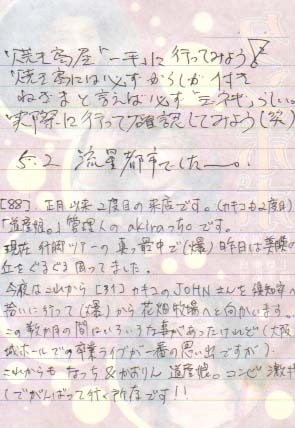 "焼き鳥屋"一平"に行ってみよう!
"焼き鳥には必ずからしが付き
ねぎまと言えば必ず"玉ネギ"らしい。
実際に行って確認してみよう(笑)
5.2 流星都市でした〜。
[88] 正月以来2度目の来店です。(カキコも2度目)
「道産娘。」管理人のakiraっちoです。
現在 行脚ツアーの真っ最中で(爆)昨日は美瞬の
丘をぐるぐる回ってました。
今夜はこれから[31]カキコのJOHNさんを倶知安へ
拾いに行って(爆)から花畑牧場へと向かいます。
この数か月の間にいろいろな事があったけれど(大阪
城ホールでの卒業ライブが一番の思い出ですが)
これからも なっち&かおりん 道産娘。コンビ 激
(でがんばって行く所存です!!